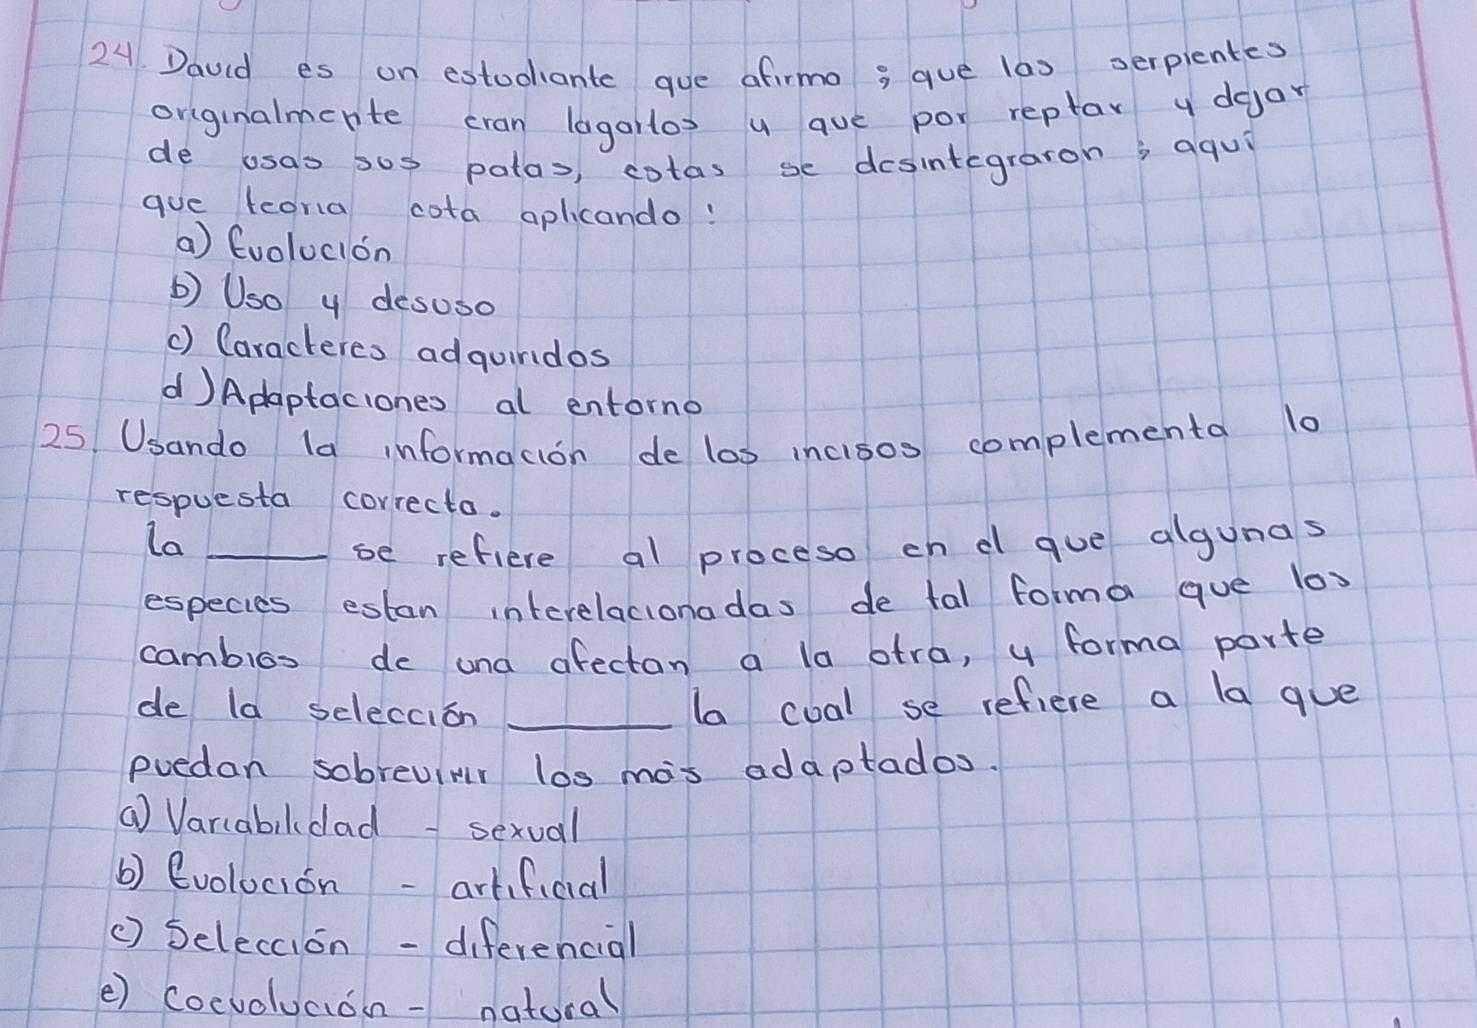 24. David es un estudiante que afirma ; que las serpientes
originalmente eran lagartos y que por reptar y dejar
de usas sus patas, estas se desintegraron ; aquí
que teoria esta aplicando :
a) Evolución
b) Uso y desuso
c) Caracteres adquiridos
d) Adaptaciones al entorno
25. Usando la información de los incisos complementa lo
respuesta correcta.
La ______ se refiere al proceso en el que algunas
especies estan interelacionadas de tal forma que los
cambios de una afectan a la otra, y forma parte
de la selección ________ la cual se refiere a la que
puedan sobrevivir los más adaptados.
a) Variabilidad - sexual
b) Evolución - artificial
c) Selección - diferencial
e) coevolución - natural